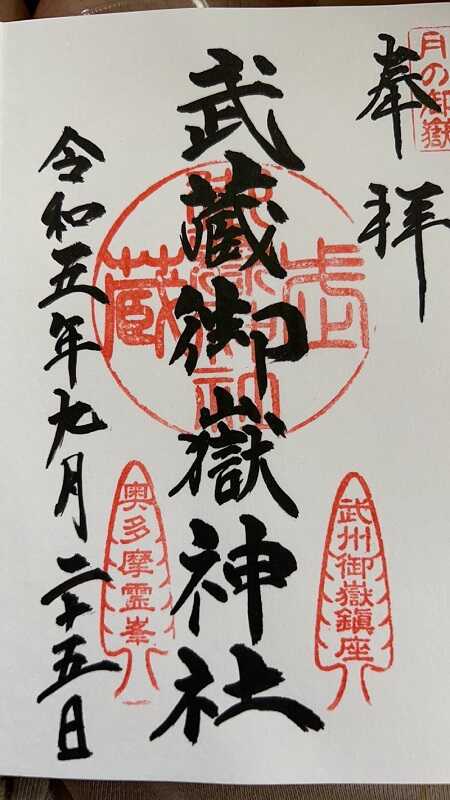 月の御嶽
奉拝
武州御嶽鎮座
武蔵御嶽神社
武蔵
奥多摩霊峯
令和五年九月二十五日